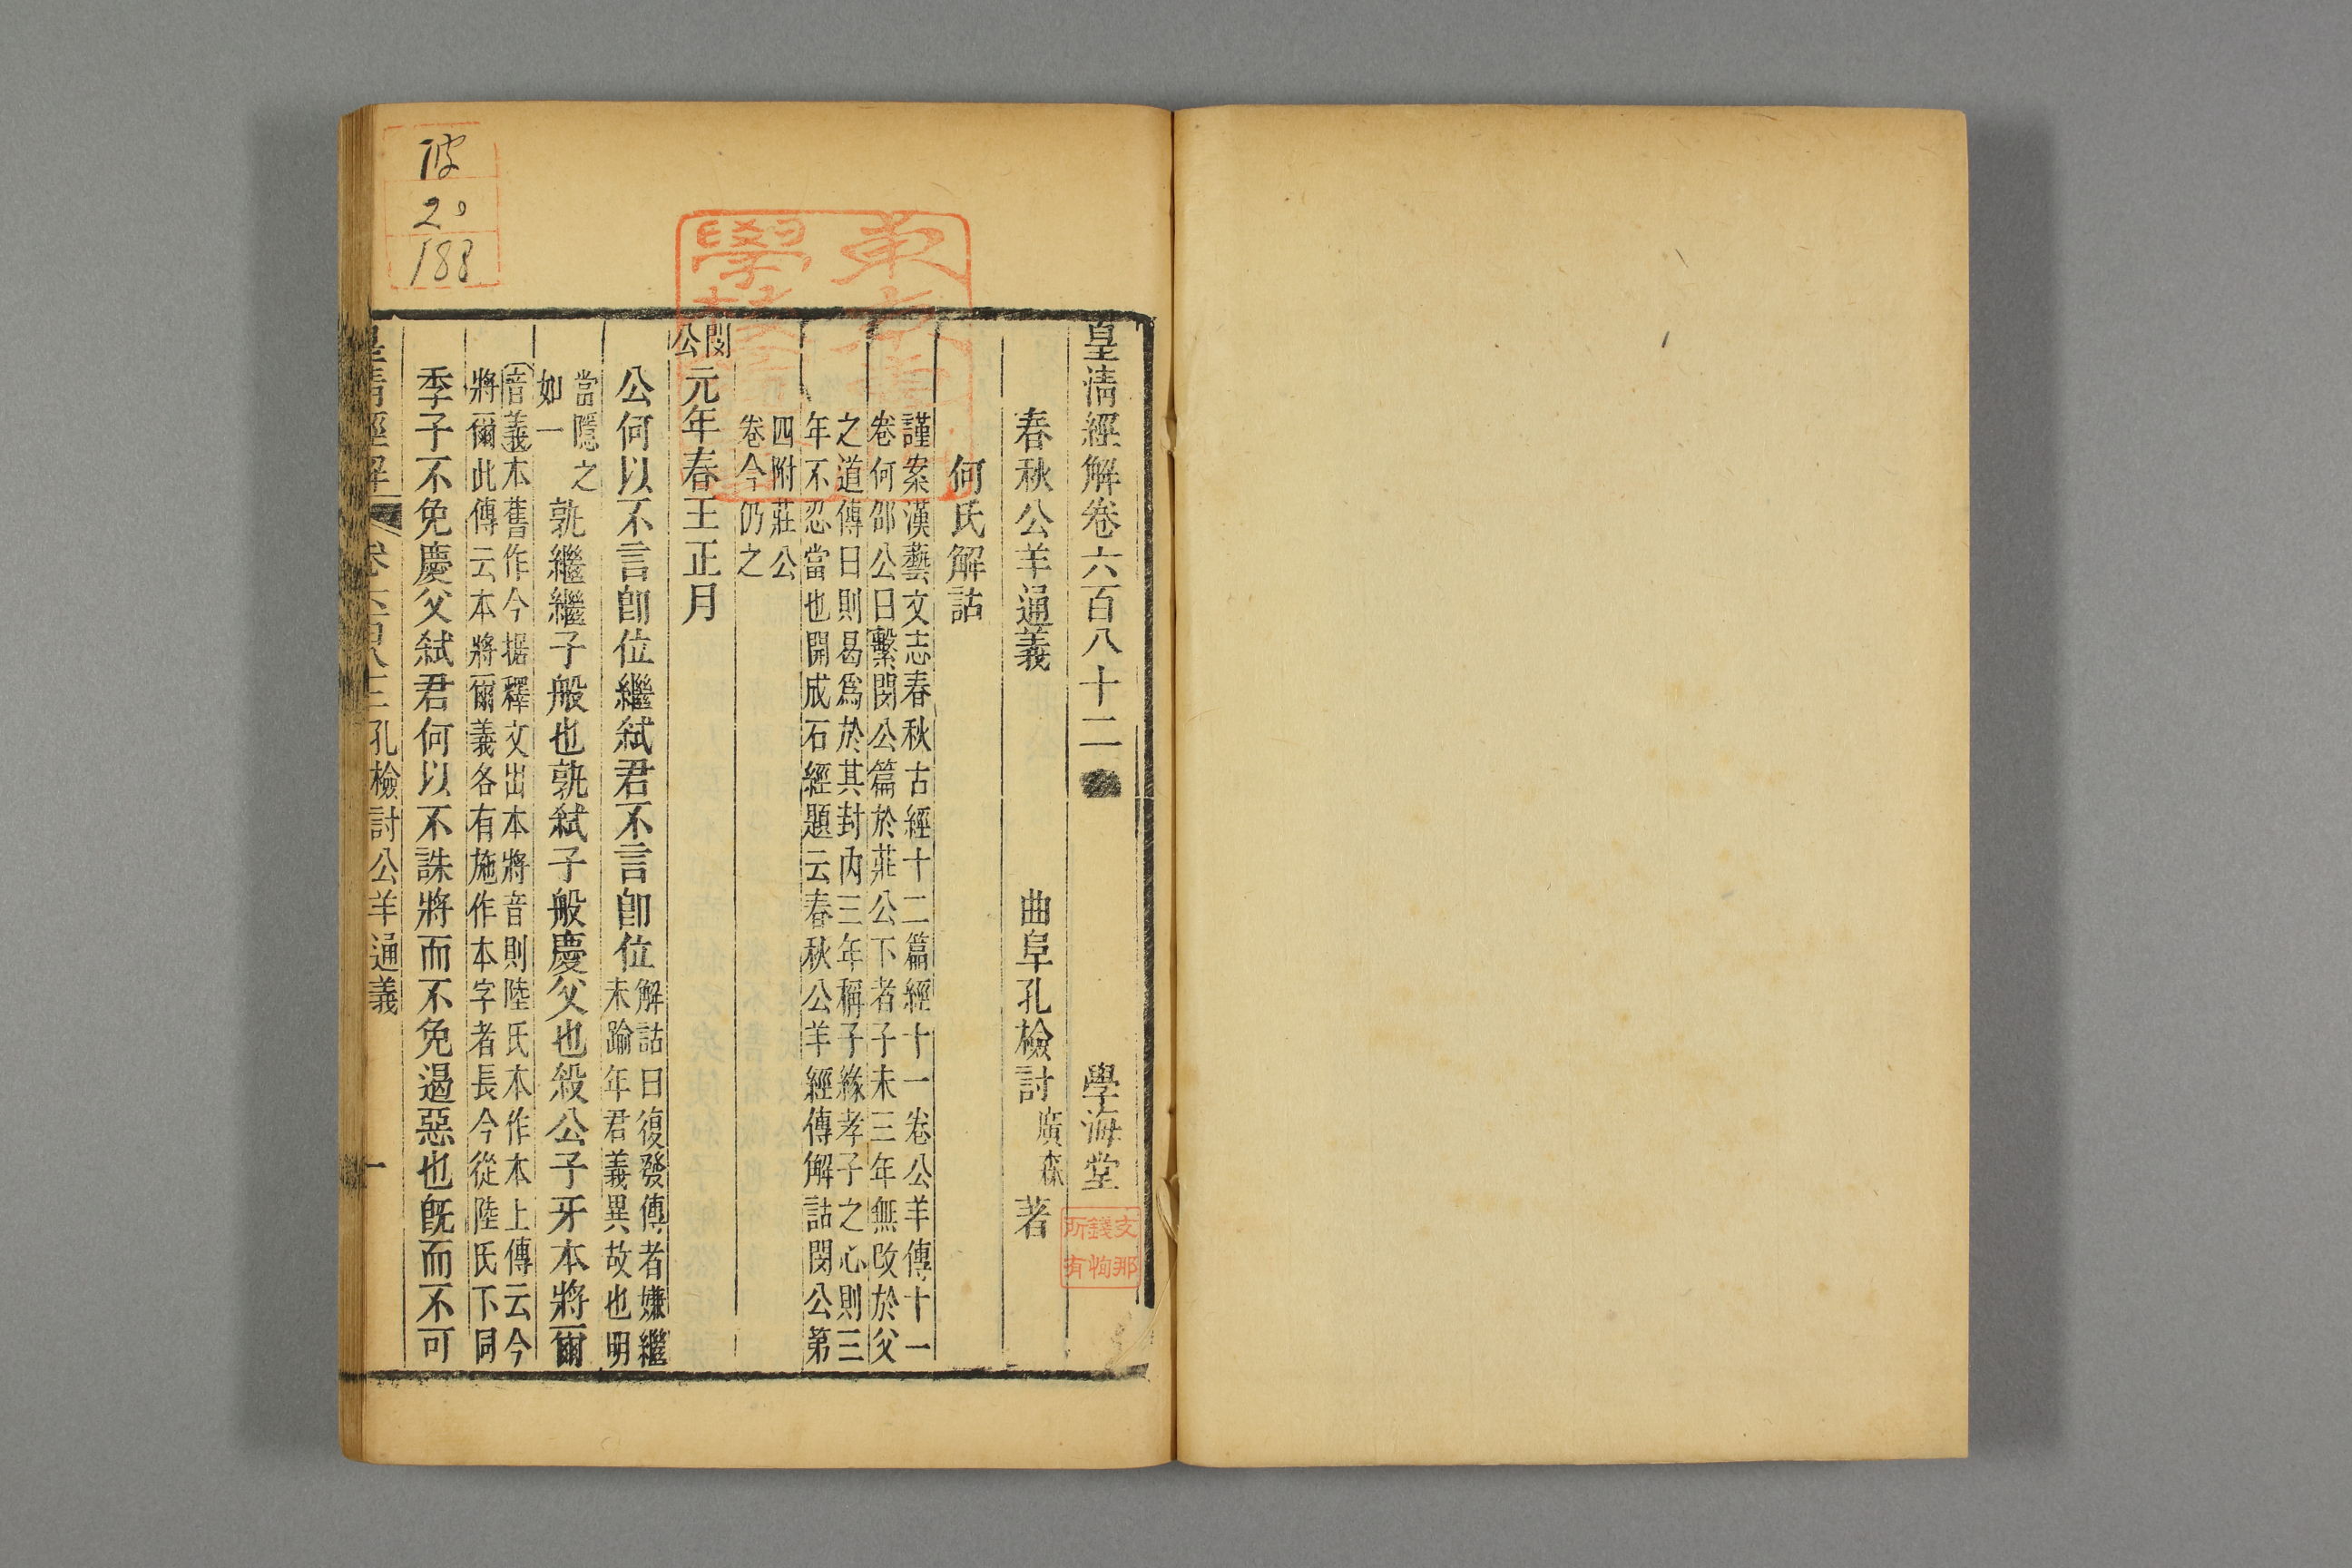 皇清經解卷六百八十二
學海堂
春秋公羊通義
曲阜孔檢討廣森著
何氏解詁
謹案漢藝文志春秋古經十二篇經十一卷公羊傳十一
卷何邵公曰繫閔公篇於莊公下者子未三年無改於父
之道傳曰則曷爲於其封內三年稱子緣孝子之心則三
年不忍當也開成石經題云春秋公羊經傳解詁閔公第
四附莊公
卷今仍之
閔公
元年春王正月
公何以不言卽位繼弒君不言卽位
解詁曰復發傳者嫌繼
未踰年君義異故也明
當隱之
如一
孰繼繼子般也孰弒子般慶父也殺公子牙本將爾
音義本舊作今据釋文出本將音則陸氏本作本上傳云今
將爾此傳云本將爾義各有施作本字者長今從陸氏下同
季子不免慶父弒君何以不誅將而不免遏惡也旣而不可
皇清經解
孔檢討公羊通義
一
支那
錢恂
所有
20
188